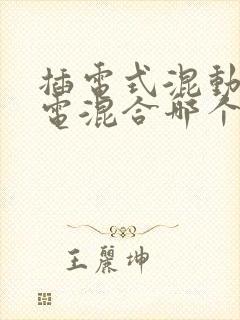 插電式混動
電混合哪个
王麗坤